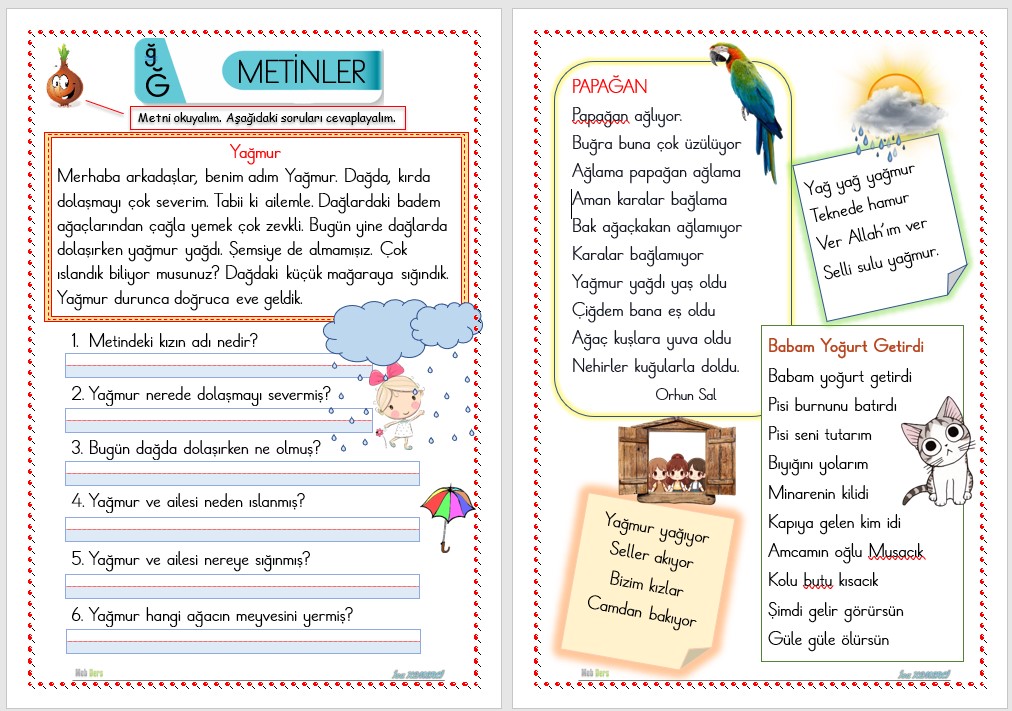 ğ
Ğ
METİNLER
Metni okuyalım. Aşağıdaki soruları cevaplayalım.
Yağmur
Merhaba arkadaşlar, benim adım Yağmur. Dağda, kırda
dolaşmayı çok severim. Tabii ki ailemle. Dağlardaki badem
ağaçlarından çağla yemek çok zevkli. Bugün yine dağlarda
dolaşırken yağmur yağdı. Şemsiye de almamışız. Çok
ıslandık biliyor musunuz? Dağdaki küçük mağaraya sığındık.
Yağmur durunca doğruca eve geldik.
1. Metindeki kızın adı nedir?
2. Yağmur nerede dolaşmayı severmiş?
3. Bugün dağda dolaşırken ne olmuş?
4. Yağmur ve ailesi neden ıslanmış?
5. Yağmur ve ailesi nereye sığınmış?
6. Yağmur hangi ağacın meyvesini yermiş?
PAPAĞAN
Papağan ağlıyor.
Buğra buna çok üzülüyor
Ağlama papağan ağlama
Aman karalar bağlama
Bak ağaçkakan ağlamıyor
Karalar bağlamıyor
Yağmur yağdı yaş oldu
Çiğdem bana eş oldu
Ağaç kuşlara yuva oldu
Nehirler kuğularla doldu.
Orhun Sal
Yağ yağ yağmur
Teknede hamur
Ver Allah'ım ver
Selli sulu yağmur.
Yağmur yağıyor
Seller akıyor
Bizim kızlar
Camdan bakıyor
Babam Yoğurt Getirdi
Babam yoğurt getirdi
Pisi burnunu batırdı
Pisi seni tutarım
Bıyığını yolarım
Minarenin kilidi
Kapıya gelen kim idi
Amcamın oğlu Musacık
Kolu butu kısacık
Şimdi gelir görürsün
Güle güle ölürsün